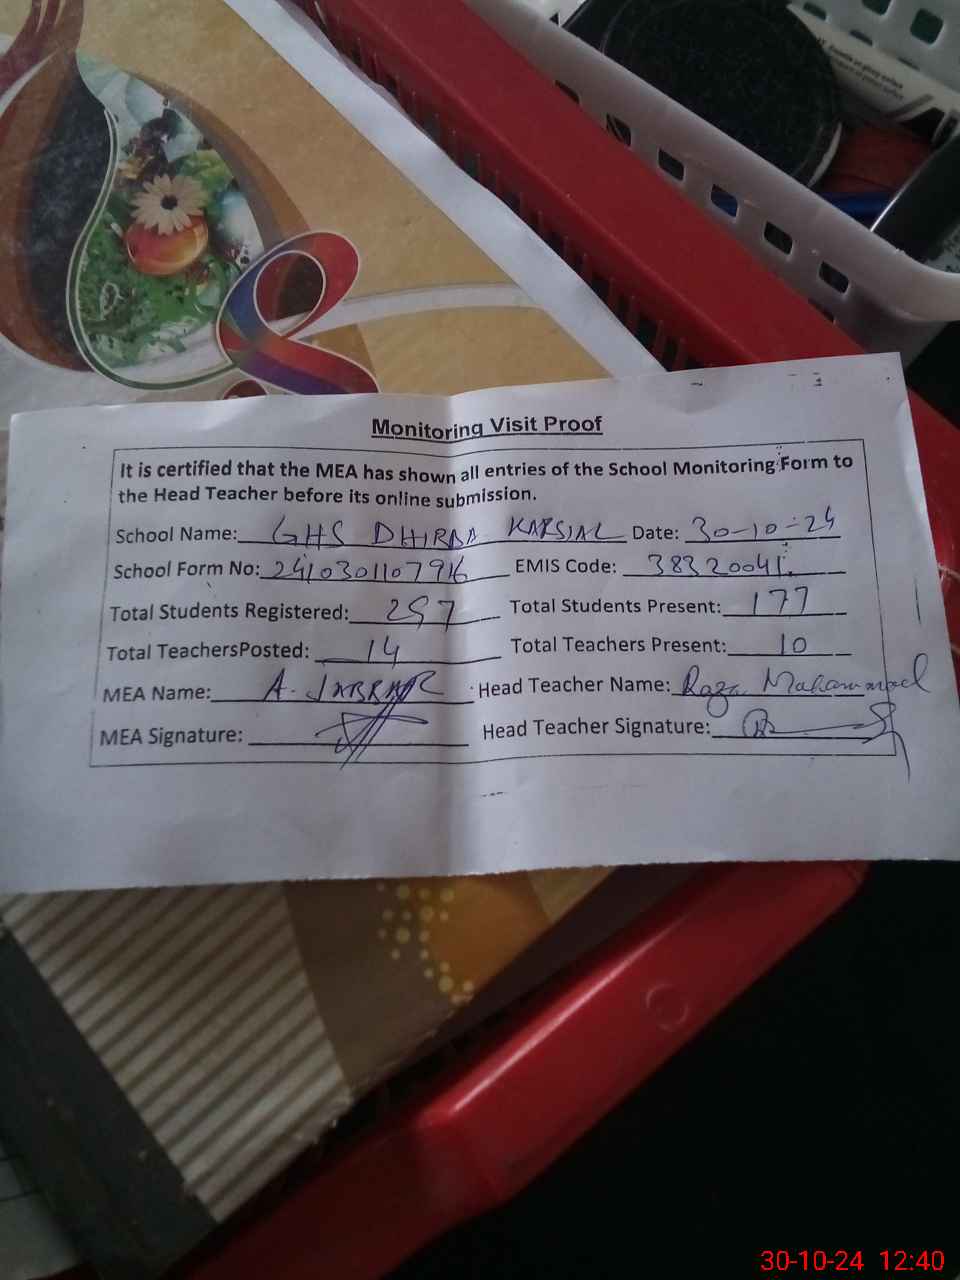 Monitoring Visit Proof
It is certified that the MEA has shown all entries of the School Monitoring Form to
the Head Teacher before its online submission.
School Name: GHS DHIRDA KARSIAL Date: 30-10-24
School Form No: 2410301107916 EMIS Code: 38320041
Total Students Registered: 257 Total Students Present: 177
Total TeachersPosted: 14 Total Teachers Present: 10
MEA Name: A. JABBAR Head Teacher Name: Raza Mahammad
MEA Signature: Head Teacher Signature:
30-10-24 12:40